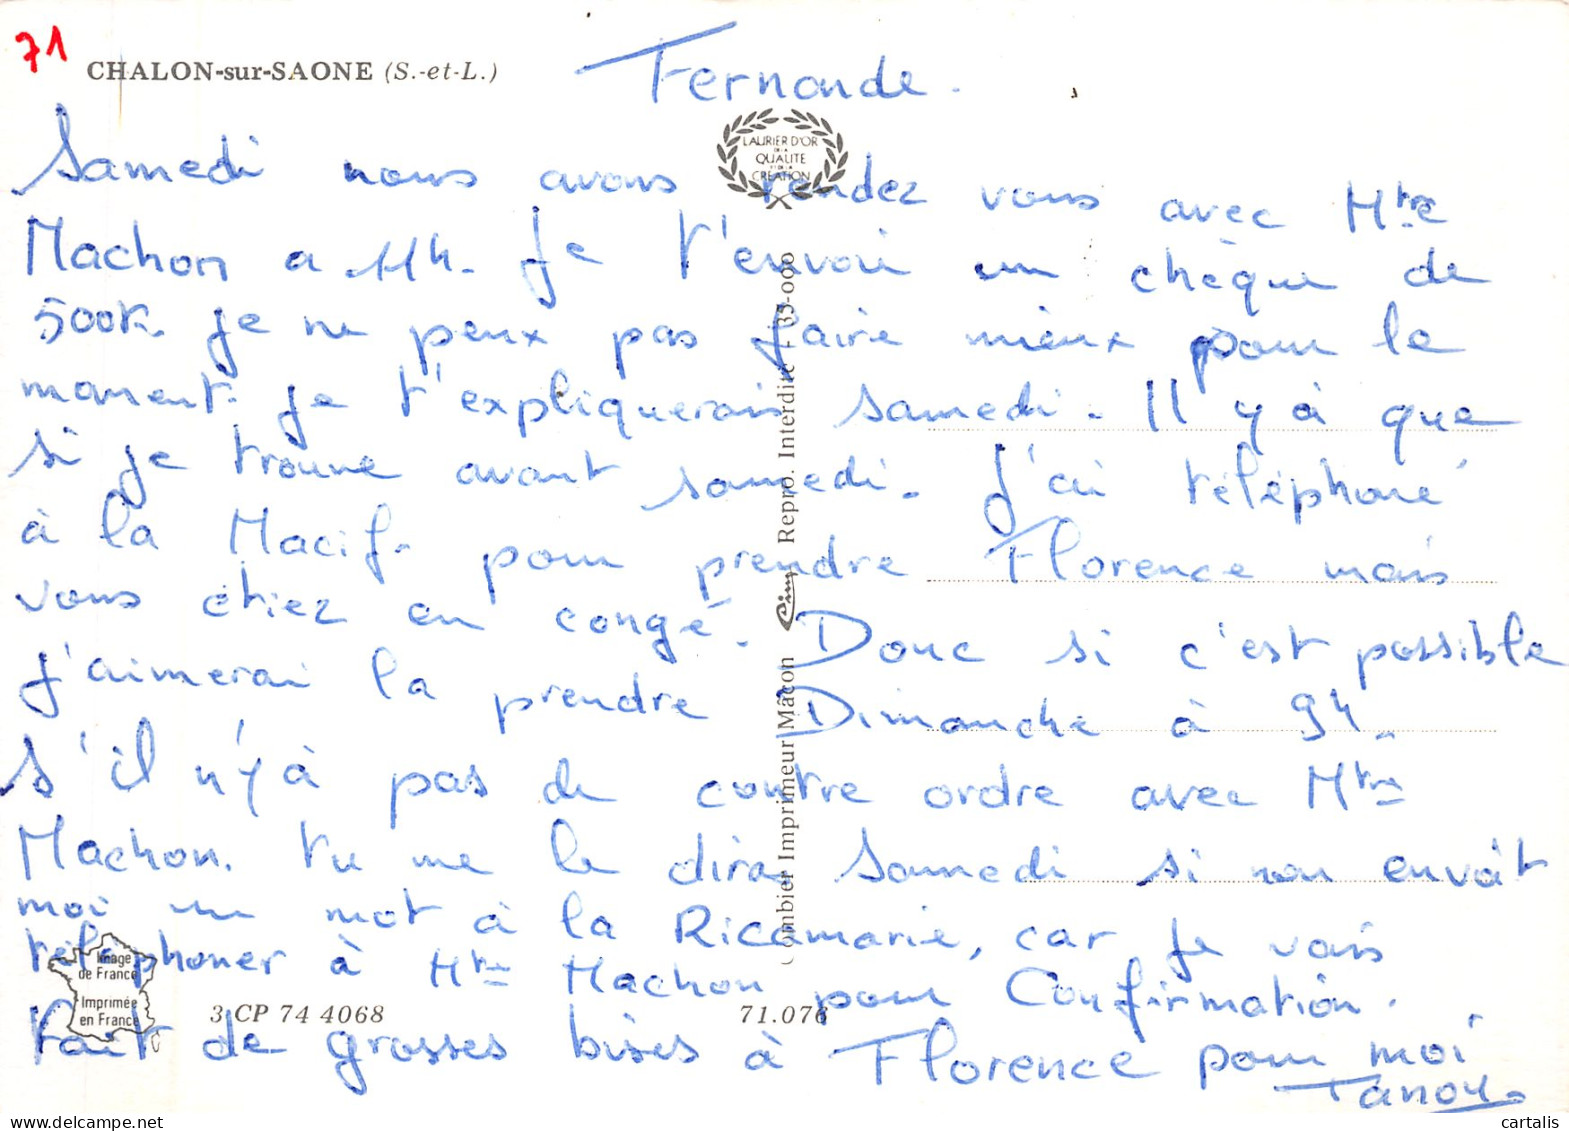 71
CHALON-sur-SAONE (S.-et-L.)
Fernande.
LAURIER D'OR
DE LA
QUALITE
ET DE LA
CREATION
Samedi nous avons rendez vous avec Mtre
Machon a 11h. Je t'envoie un chèque de
500F. je ne peux pas faire mieux pour le
moment. je t'expliquerais samedi. Il y à que
si je trouve avant samedi. J'ai téléphoné
à la Macif. pour prendre Florence mais
vous étiez en congé. Donc si c'est possible
j'aimerai la prendre Dimanche à 9H.
s'il n'y à pas de contre ordre avec Mtre
Machon. tu me le diras Samedi si non envoit
moi un mot à la Ricamarie, car je vais
téléphoner à Mtre Machon pour Confirmation.
Fait de grosses bises à Florence pour moi
Tanou.
Image
de France
Imprimée
en France
3 CP 74 4068
71.076
Combier Imprimeur Mâcon Cim Repro. Interdite - 35-000
cartalis